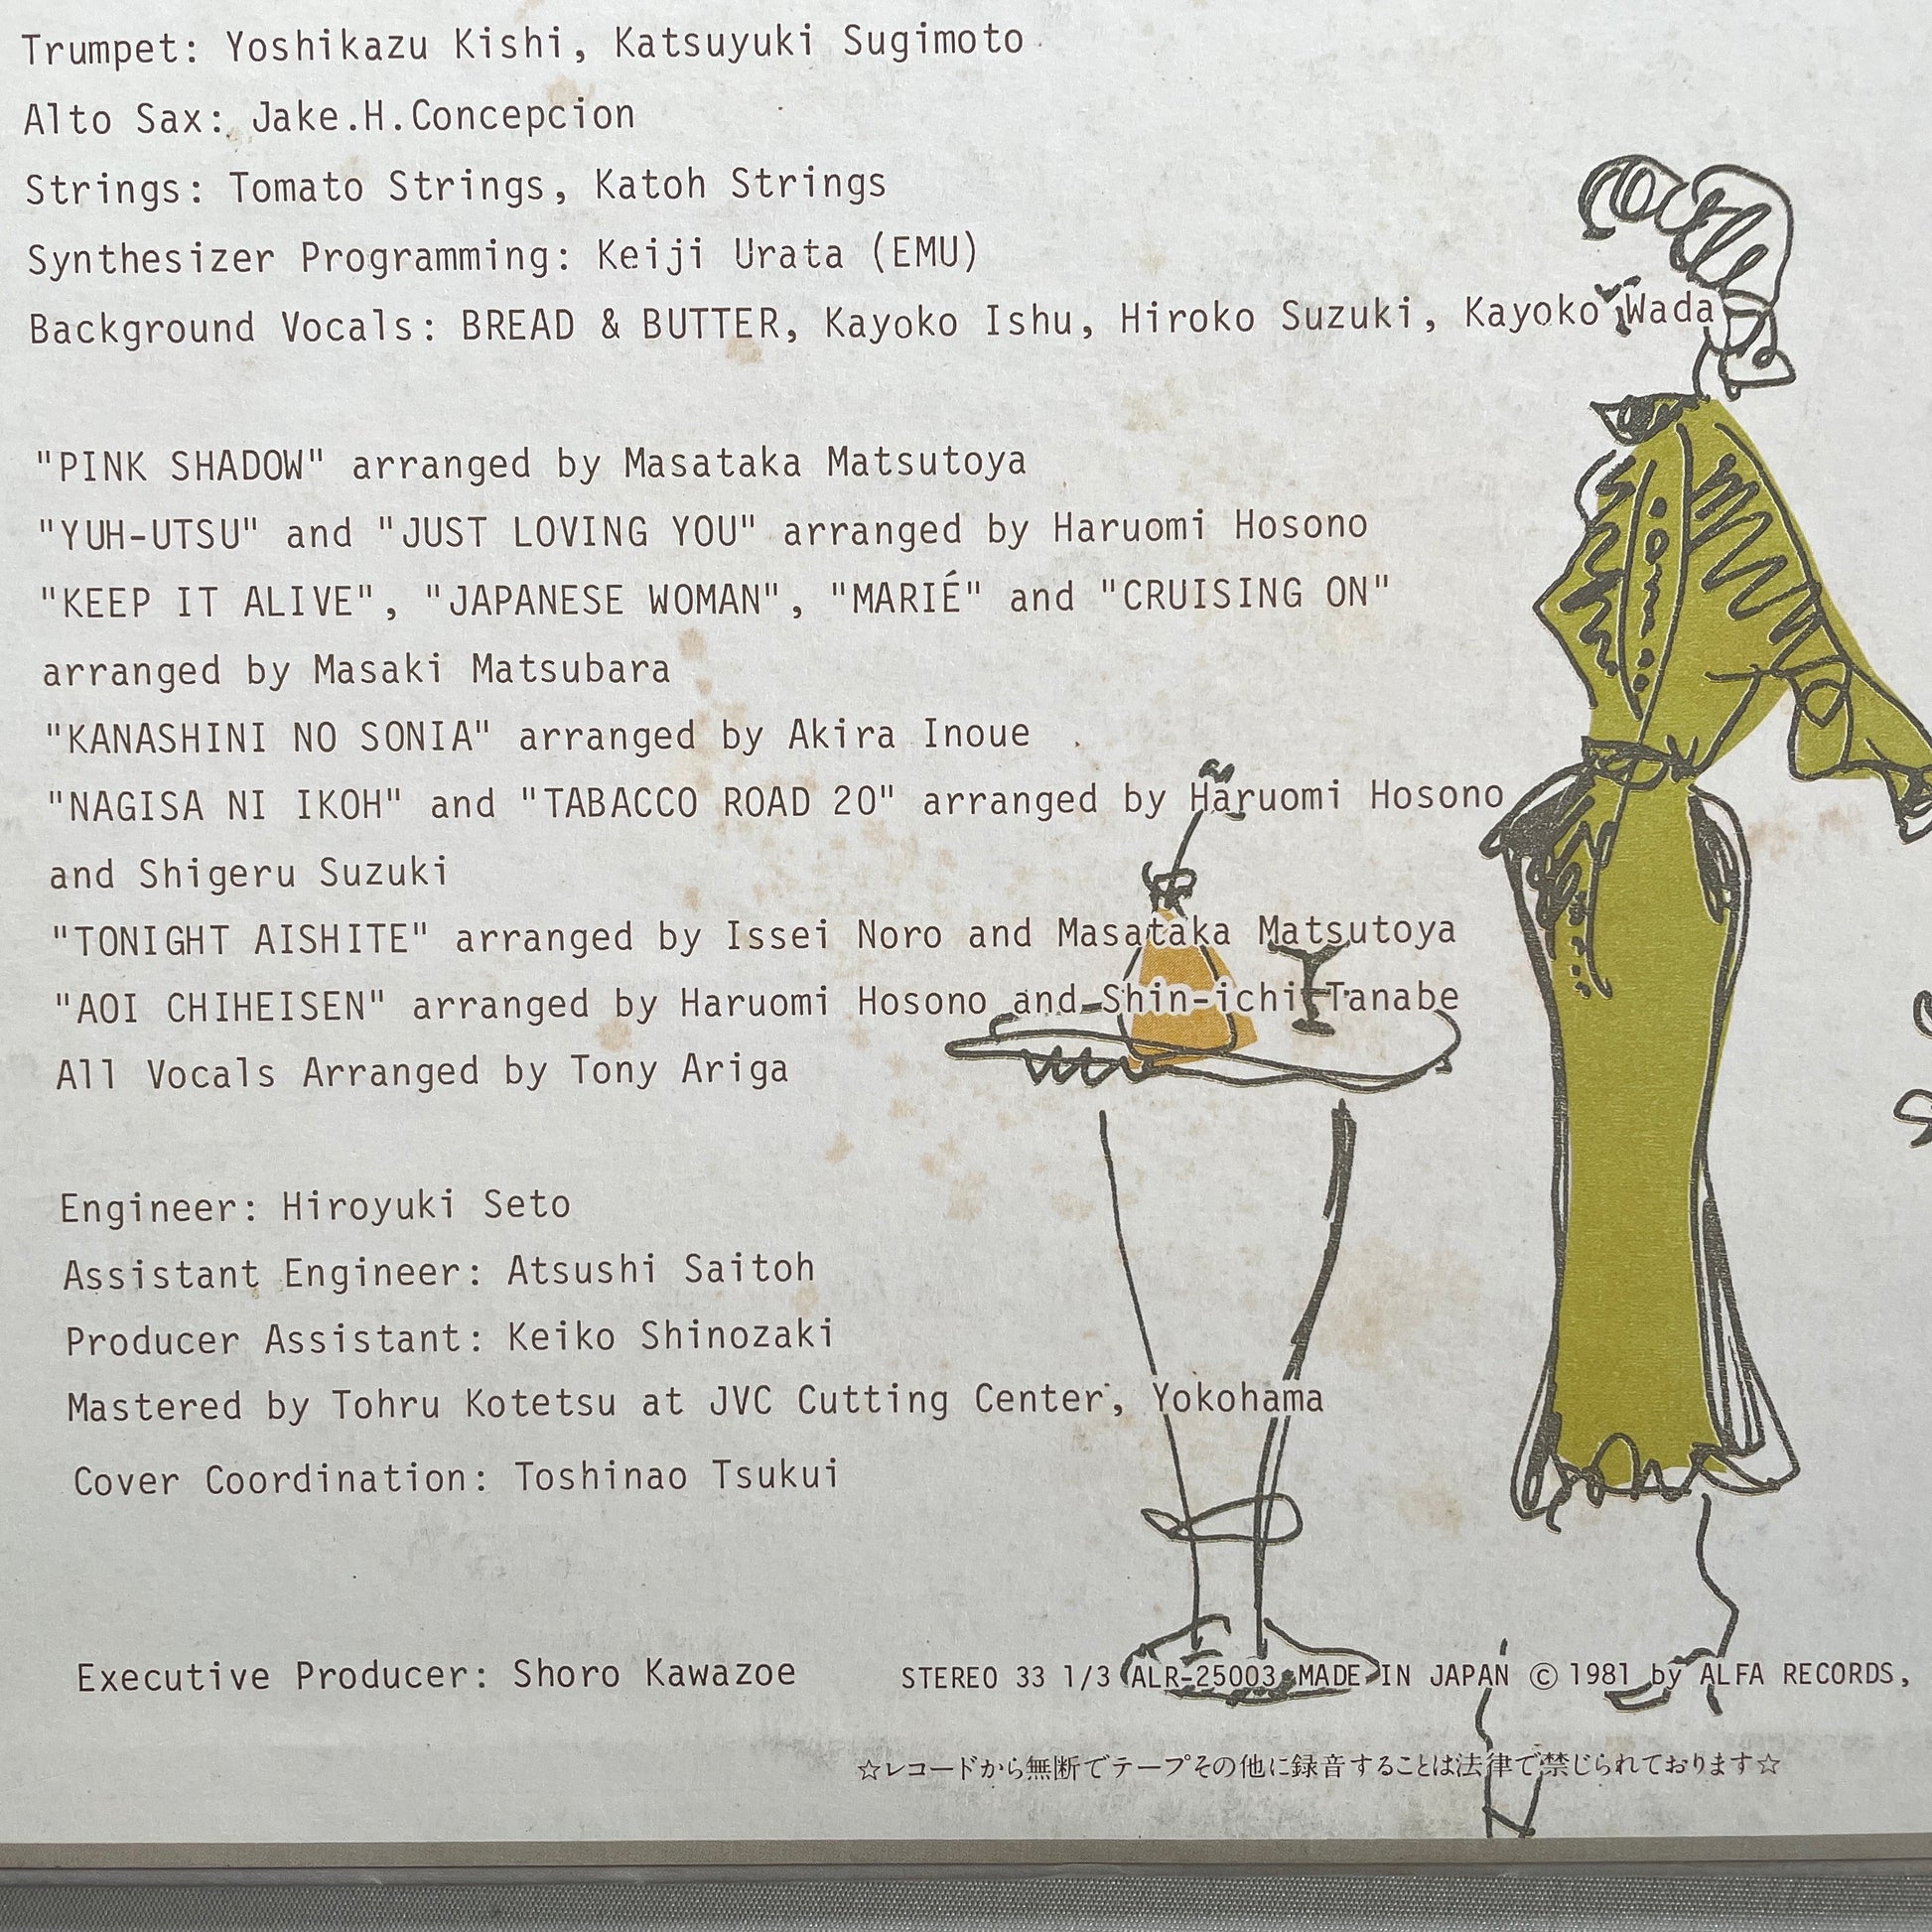 Trumpet: Yoshikazu Kishi, Katsuyuki Sugimoto
Alto Sax: Jake.H.Concepcion
Strings: Tomato Strings, Katoh Strings
Synthesizer Programming: Keiji Urata (EMU)
Background Vocals: BREAD & BUTTER, Kayoko Ishu, Hiroko Suzuki, Kayoko Wada
"PINK SHADOW" arranged by Masataka Matsutoya
"YUH-UTSU" and "JUST LOVING YOU" arranged by Haruomi Hosono
"KEEP IT ALIVE", "JAPANESE WOMAN", "MARIÉ" and "CRUISING ON"
arranged by Masaki Matsubara
"KANASHINI NO SONIA" arranged by Akira Inoue
"NAGISA NI IKOH" and "TABACCO ROAD 20" arranged by Haruomi Hosono
and Shigeru Suzuki
"TONIGHT AISHITE" arranged by Issei Noro and Masataka Matsutoya
"AOI CHIHEISEN" arranged by Haruomi Hosono and Shin-ichi Tanabe
All Vocals Arranged by Tony Ariga
Engineer: Hiroyuki Seto
Assistant Engineer: Atsushi Saitoh
Producer Assistant: Keiko Shinozaki
Mastered by Tohru Kotetsu at JVC Cutting Center, Yokohama
Cover Coordination: Toshinao Tsukui
Executive Producer: Shoro Kawazoe
STEREO 33 1/3 ALR-25003 MADE IN JAPAN © 1981 by ALFA RECORDS,
☆レコードから無断でテープその他に録音することは法律で禁じられております☆